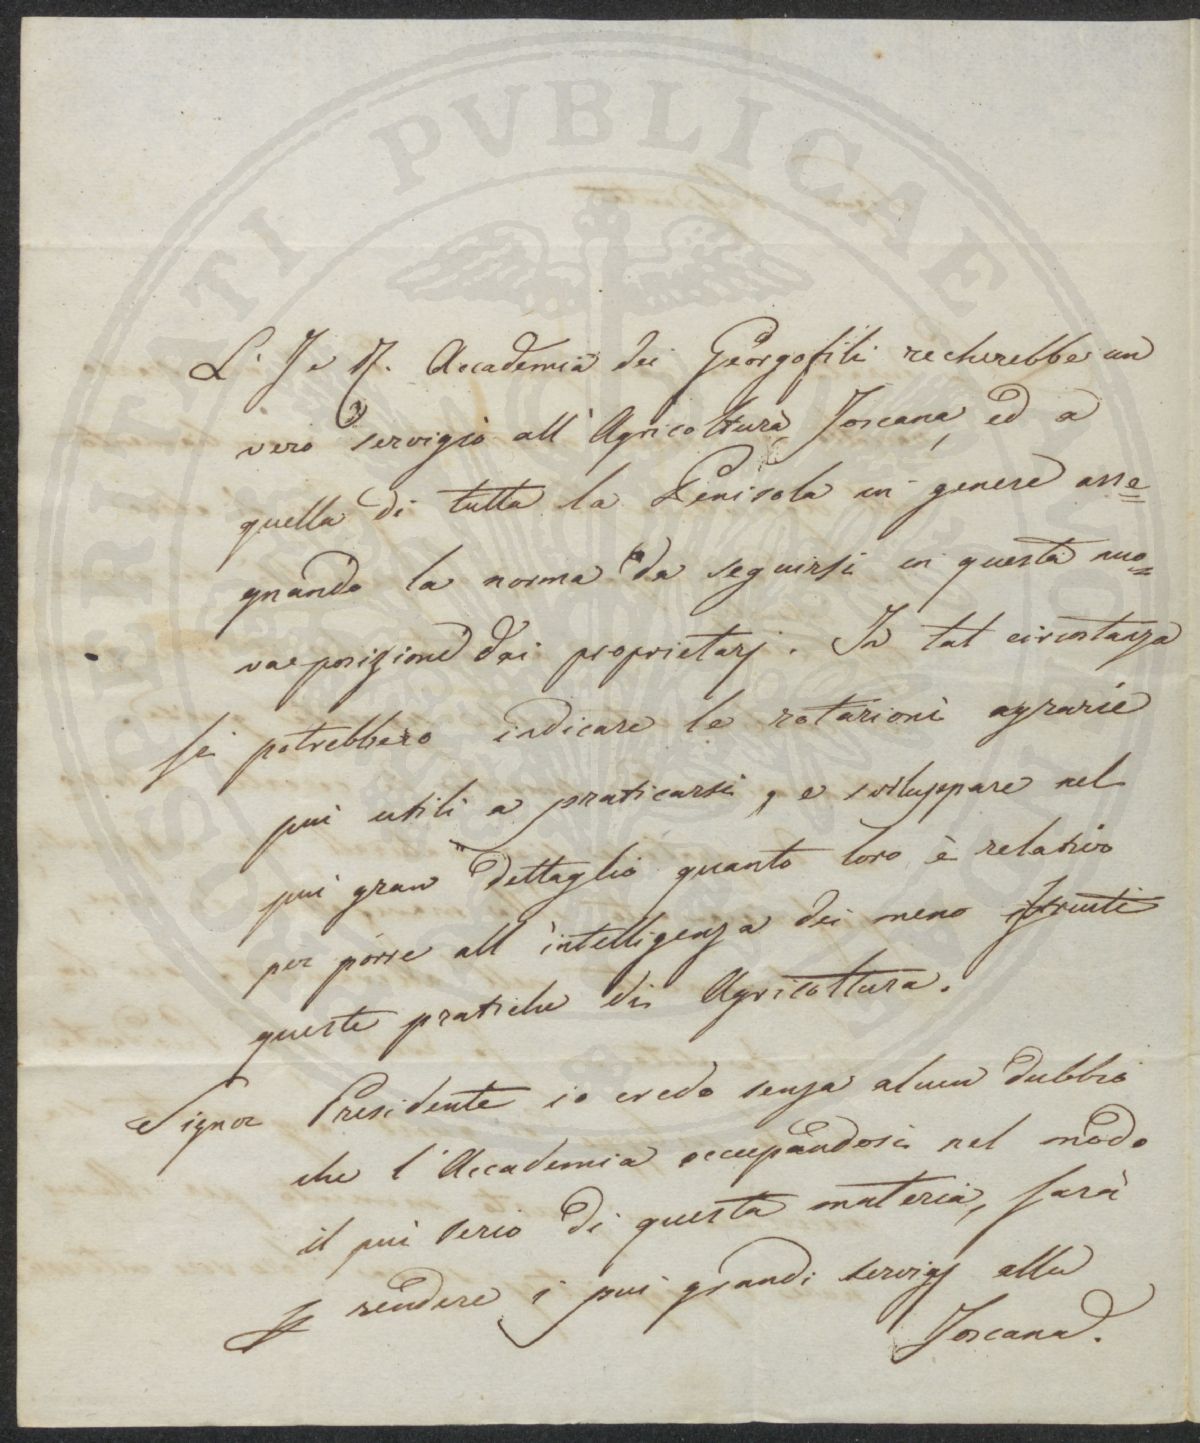 L' I e R. Accademia dei Georgofili recherebbe un
vero servigio all' Agricoltura Toscana, ed a
quella di tutta la Penisola in genere asse=
gnando la norma da seguirsi in questa nuo=
va posizione dai proprietarj. In tal circostanza
si potrebbero indicare le rotazioni agrarie
più utili a praticarsi, e sviluppare nel
più gran dettaglio quanto loro è relativo
per porre all' intelligenza dei meno istruiti
queste pratiche di Agricoltura.
Signor Presidente io credo senza alcun dubbio
che l' Accademia occupandosi nel modo
il più serio di questa materia, sarà
rendere i più grandi servigj alla
Toscana.
PROSPERITATI PVBLICAE